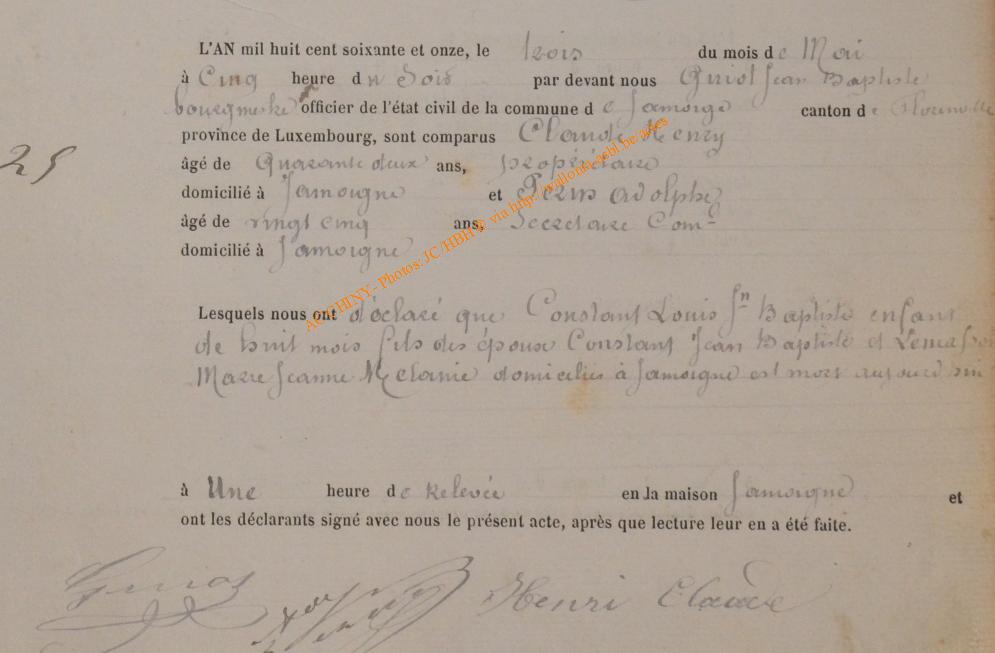 L'AN mil huit cent soixante et onze, le trois du mois de Mai
à Cinq heure du Soir par devant nous Jean Baptiste
bourgmestre officier de l'état civil de la commune de Jamoigne canton de Florenville
province de Luxembourg, sont comparus Claude Henry
25
âgé de Quarante deux ans, propriétaire
domicilié à Jamoigne et Adolphe
âgé de vingt cinq ans, Secretaire Com
domicilié à Jamoigne
AC CHINY - Photos: JC/HBH © via
Lesquels nous ont déclaré que Constant Louis Jn Baptiste enfant
de huit mois fils des époux Constant Jean Baptiste et
Marie Jeanne Melanie domiciliés à Jamoigne est mort aujourd'hui
à Une heure de Relevée en la maison Jamoigne et
ont les déclarants signé avec nous le présent acte, après que lecture leur en a été faite.
Henri Claude